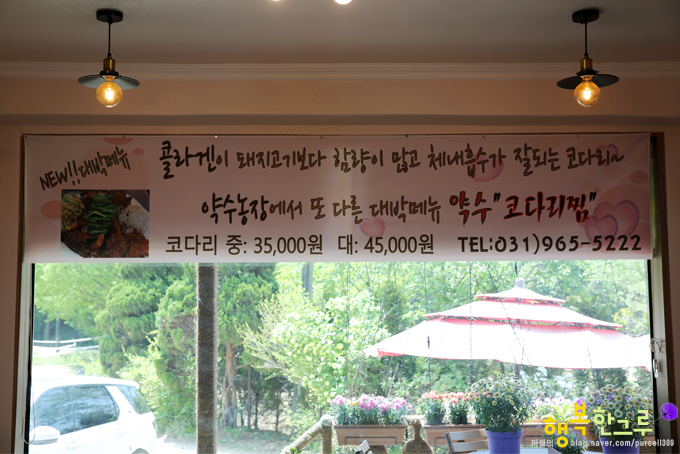 NEW!!대박메뉴
콜라겐이 돼지고기보다 함량이 많고 체내흡수가 잘되는 코다리~
약수농장에서 또 다른 대박메뉴 약수"코다리찜"
코다리 중: 35,000원 대: 45,000원 TEL:031)965-5222
행복한그루
퍼셀인 blog.naver.com/purcell309